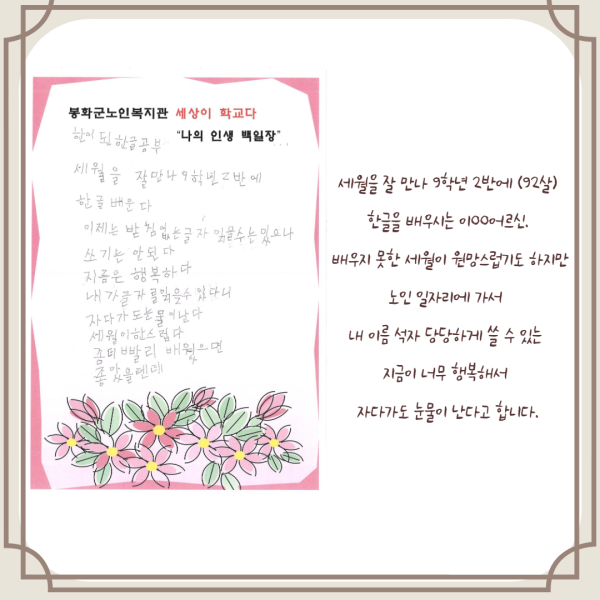 봉화군노인복지관 세상이 학교다
"나의 인생 백일장"
한이 된 한글공부
세월을 잘만나 9학년 2반에
한글 배운다
이제는 받침없는글자 읽을수는있으나
쓰기는 안된다
지금은 행복하다
내가글자를읽을수있다니
자다가도눈물이난다
세월이한스럽다
좀더빨리 배웠으면
좋았을텐데
세월을 잘 만나 9학년 2반에 (92살)
한글을 배우시는 이OO어르신.
배우지 못한 세월이 원망스럽기도 하지만
노인 일자리에 가서
내 이름 석자 당당하게 쓸 수 있는
지금이 너무 행복해서
자다가도 눈물이 난다고 합니다.